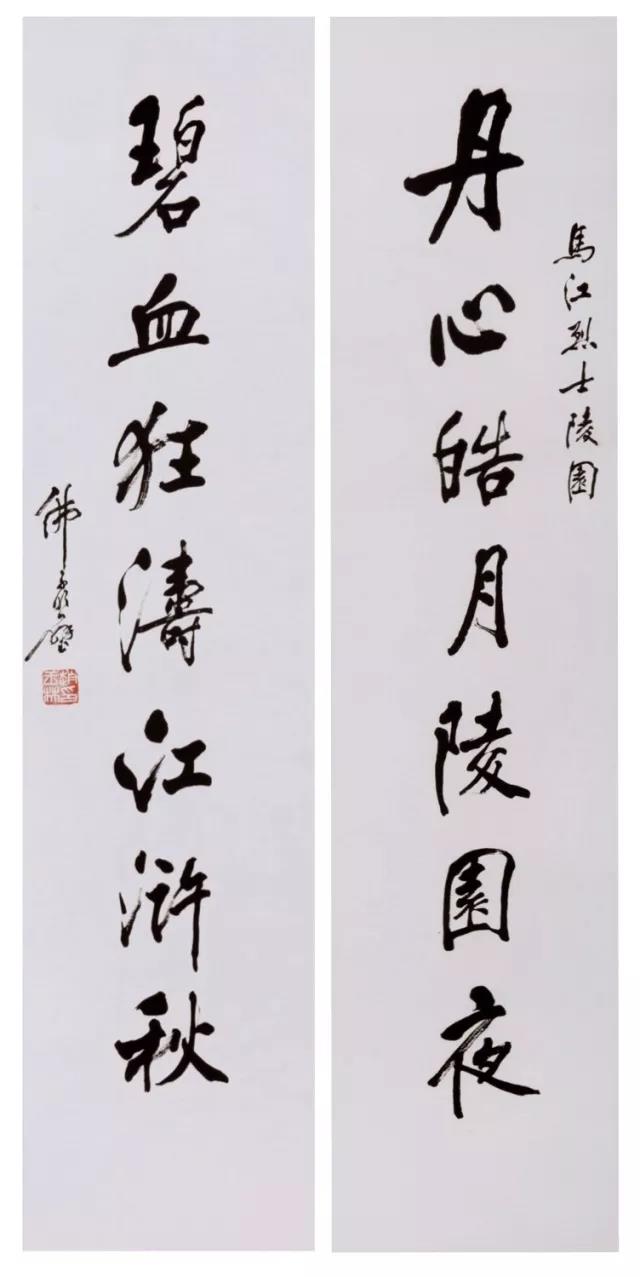 馬江烈士陵園
丹心皓月陵園夜
碧血狂濤江滸秋
佛
趙印玉林